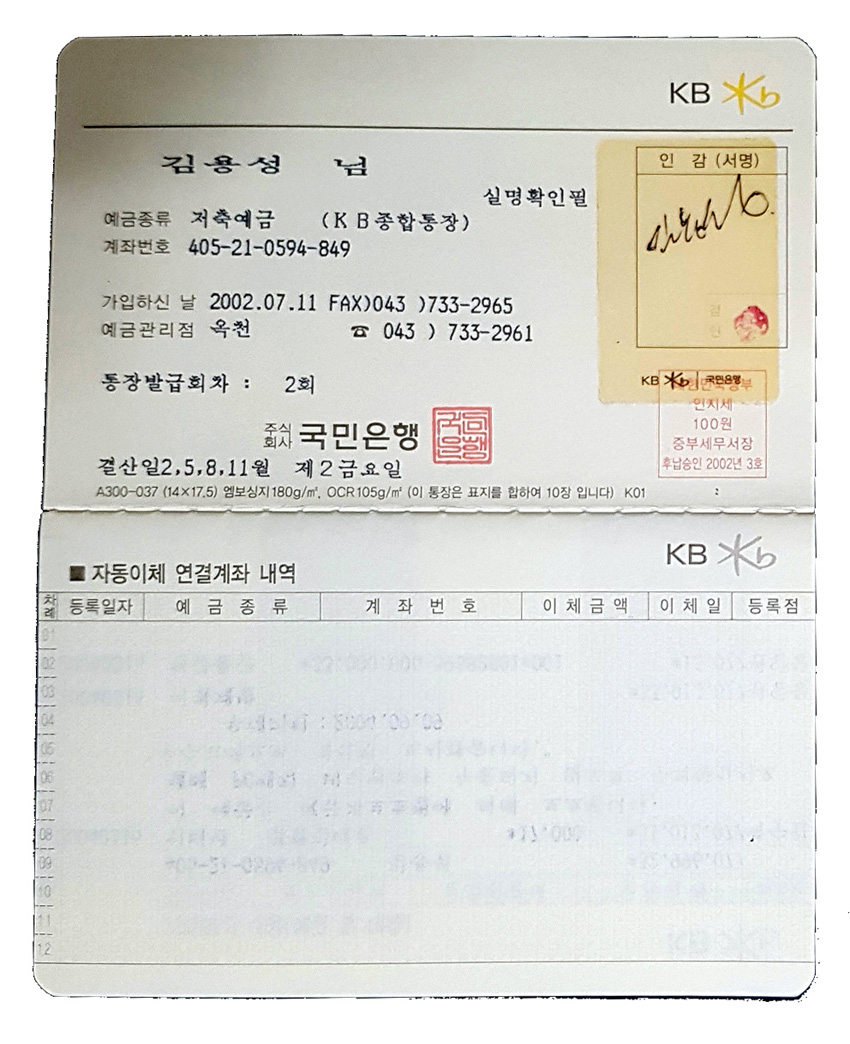 KB
김용성 님
인 감 (서명)
실명확인필
예금종류 저축예금 (KB종합통장)
계좌번호 405-21-0594-849
가입하신 날 2002.07.11 FAX)043 )733-2965
예금관리점 옥천 ☎ 043 ) 733-2961
통장발급회차 : 2회
KB 국민은행
인지세
100원
중부세무서장
후납승인 2002년 3호
주식회사 국민은행
결산일2,5,8,11월 제2금요일
A300-037 (14×17.5) 엠보싱지180g/㎡, OCR105g/㎡ (이 통장은 표지를 합하여 10장 입니다) K01 :
KB
■ 자동이체 연결계좌 내역
차례 등록일자 예금종류 계좌번호 이체금액 이체일 등록점
01
02
03
04
05
06
07
08
09
10
11
12